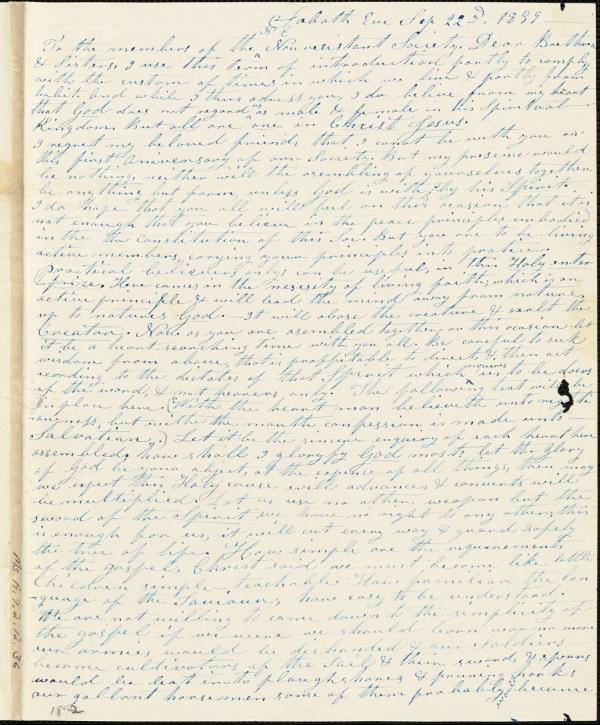 Sabath Eve Sep 22d. 1839
N E
To the members of the Non resistant Society. Dear Brethren
& Sisters, I use this term of introduction partly to comply
with the custom of times in which we live & partly from
habit. And while I thus adress you, I do believe from my heart
that God does not regard us as male & female in his Spiritual
Kingdom. But all are one in Christ Jesus.
I regret my beloved friends that I cannot be with you on
this first Aniversary of our Society. But my presence would
be nothing, neither will the asembling of yourselves together
be anything but form, unless God is with by his Spirit.
I do hope that you all will feel on this ocasion that it is
not enough that you believe in the peace principles embodied
in the the Constitution of this Soc. But you are to be living
active members, carying your principles into practice.
Practical believers only, can be useful, in this Holy enter
prize. Here comes in the nesesity of living faith, which is an
active principle & will lead the mind away from nature,
up to natures God. It will abase the creature & exalt the
Creator. Now as you are asembled together on this ocasion let
it be a heart searching time with you all. Be careful to seek
wisdom from above, that is proffitable to direct, & then act
acording to the dictates of that Spirit which requires us to be doers
of the word, & not hearers only. The following text will be
in place here. (With the heart man believeth unto righte
ousness, but with the mouth confession is made unto
Salvation,) Let it be the sincere enquiry of each heart here
assembled, how shall I glorify God most, let the glory
of God be your object, at the expence of all things, then may
we expect this Holy cause will advance, & converts will
be multiplied. Let us use no other weapon but the
sword of the Spirit we have no right to any other, this
is enough for us, it will cut every way & guard safely
the tree of life. How simple are the requirements
of the gospel, Christ said we must become like little
children simple teachable. How familiar the lan
guage of the Saviour, how easy to be understood.
We are not willing to come down to the simplicity of
the gospel if we were we should learn war no more
our armies would be disbanded & our Soldiers
become cultivators of the Soil, & their swords & spears
would be beat into ploughshares & pruning hooks
our gallant horsemen some of them probably would become
182